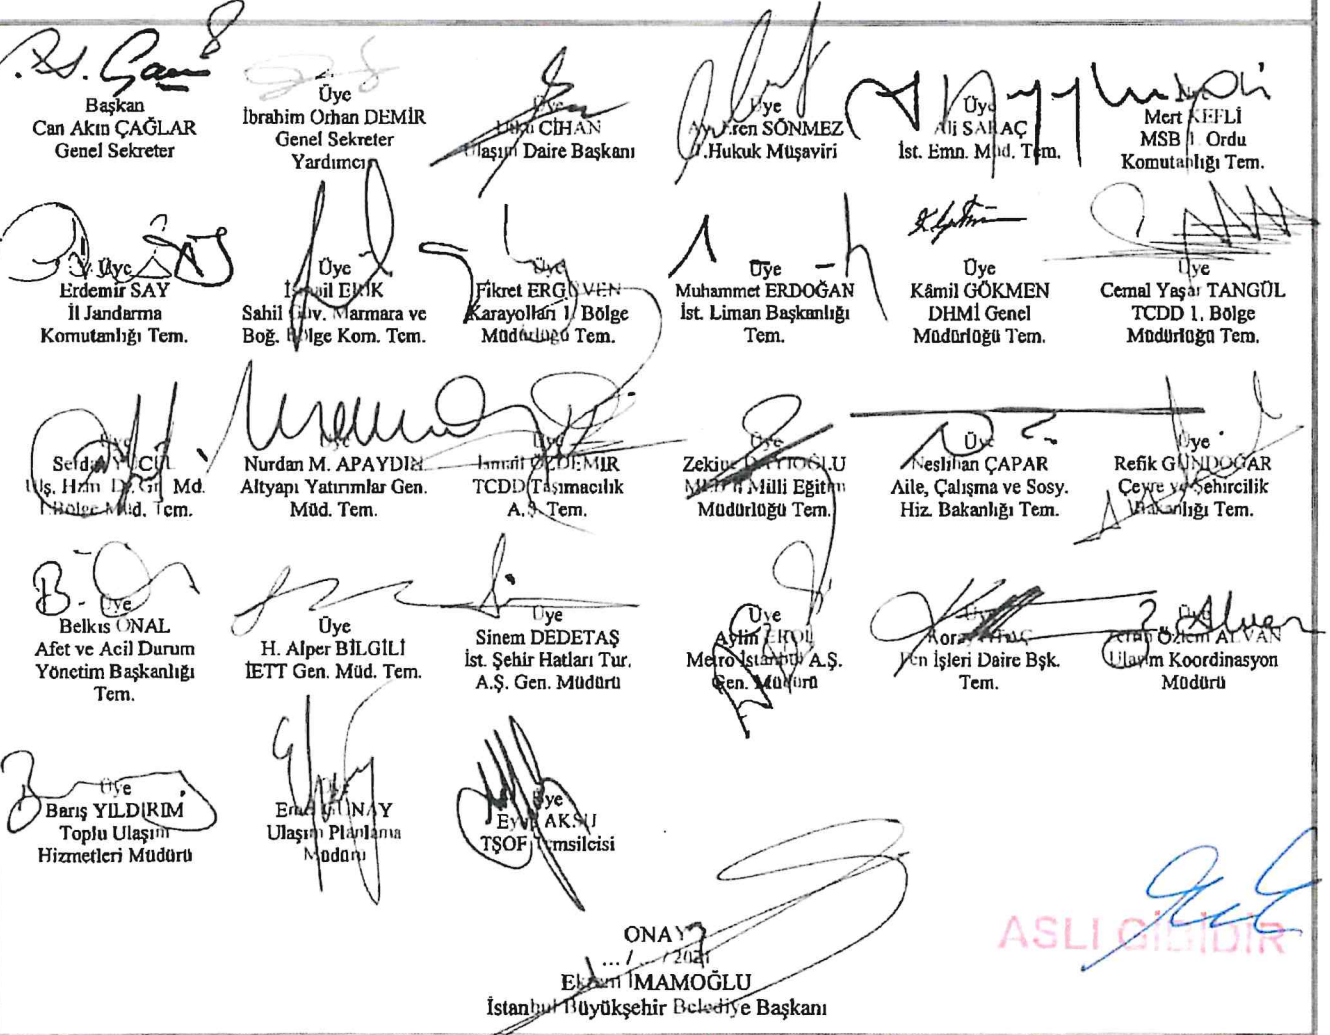 Başkan
Can Akın ÇAĞLAR
Genel Sekreter
Üye
İbrahim Orhan DEMİR
Genel Sekreter
Yardımcısı
Üye
Utku CİHAN
Ulaşım Daire Başkanı
Üye
Eren SÖNMEZ
1.Hukuk Müşaviri
Üye
Ali SARAÇ
İst. Emn. Müd. Tem.
Mert KEFLİ
MSB 1. Ordu
Komutanlığı Tem.
Üye
Erdemir SAY
İl Jandarma
Komutanlığı Tem.
Üye
İsmail ERİK
Sahil Güv. Marmara ve
Boğ. Bölge Kom. Tem.
Üye
Fikret ERGÜVEN
Karayolları 1. Bölge
Müdürlüğü Tem.
Üye
Muhammet ERDOĞAN
İst. Liman Başkanlığı
Tem.
Üye
Kâmil GÖKMEN
DHMİ Genel
Müdürlüğü Tem.
Üye
Cemal Yaşar TANGÜL
TCDD 1. Bölge
Müdürlüğü Tem.
Üye
Ulş. Hzm Md.
1.Bölge Müd. Tem.
Nurdan M. APAYDIN
Altyapı Yatırımlar Gen.
Müd. Tem.
Üye
İsmail ÖZDEMİR
TCDD Taşımacılık
A.Ş. Tem.
Üye
DAYIOĞLU
Milli Eğitim
Müdürlüğü Tem.
Üye
Neslihan ÇAPAR
Aile, Çalışma ve Sosy.
Hiz. Bakanlığı Tem.
Üye
Refik GÜNDOĞAR
Çevre ve Şehircilik
Bakanlığı Tem.
Üye
Belkıs ÖNAL
Afet ve Acil Durum
Yönetim Başkanlığı
Tem.
Üye
H. Alper BİLGİLİ
İETT Gen. Müd. Tem.
Üye
Sinem DEDETAŞ
İst. Şehir Hatları Tur.
A.Ş. Gen. Müdürü
Üye
Aylin EROL
Metro İstanbul A.Ş.
Gen. Müdürü
Üye
Koray
Fen İşleri Daire Bşk.
Tem.
Üye
Özlem ALVAN
Ulaşım Koordinasyon
Müdürü
Üye
Barış YILDIRIM
Toplu Ulaşım
Hizmetleri Müdürü
GÜNAY
Ulaşım Planlama
Müdürü
Üye
Eyüp AKSU
TŞOF Temsilcisi
ONAY
... / ... / 2021
Ekrem İMAMOĞLU
İstanbul Büyükşehir Belediye Başkanı
ASLI GİBİDİR